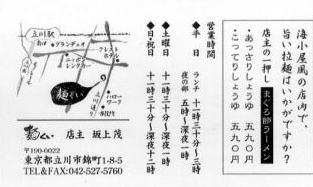 海小屋風の店内で、
旨い拉麺はいかがですか?
店主の一押し まぐろ節ラーメン
・あっさりしょうゆ 五九〇円
・こってりしょうゆ 五九〇円
営業時間
◆平 日 ランチ 十一時三十分〜
夜の部 五時〜深夜一時
◆土曜日 十一時三十分〜深夜一時
◆日・祝日 十一時三十分〜深夜十二時
立川駅
グランデュオ
クレストホテル
ニッポンレンタカー
ハローワーク
麺くい
麺くい 店主 坂上茂
〒190-0022
東京都立川市錦町1-8-5
TEL&FAX:042-527-5760